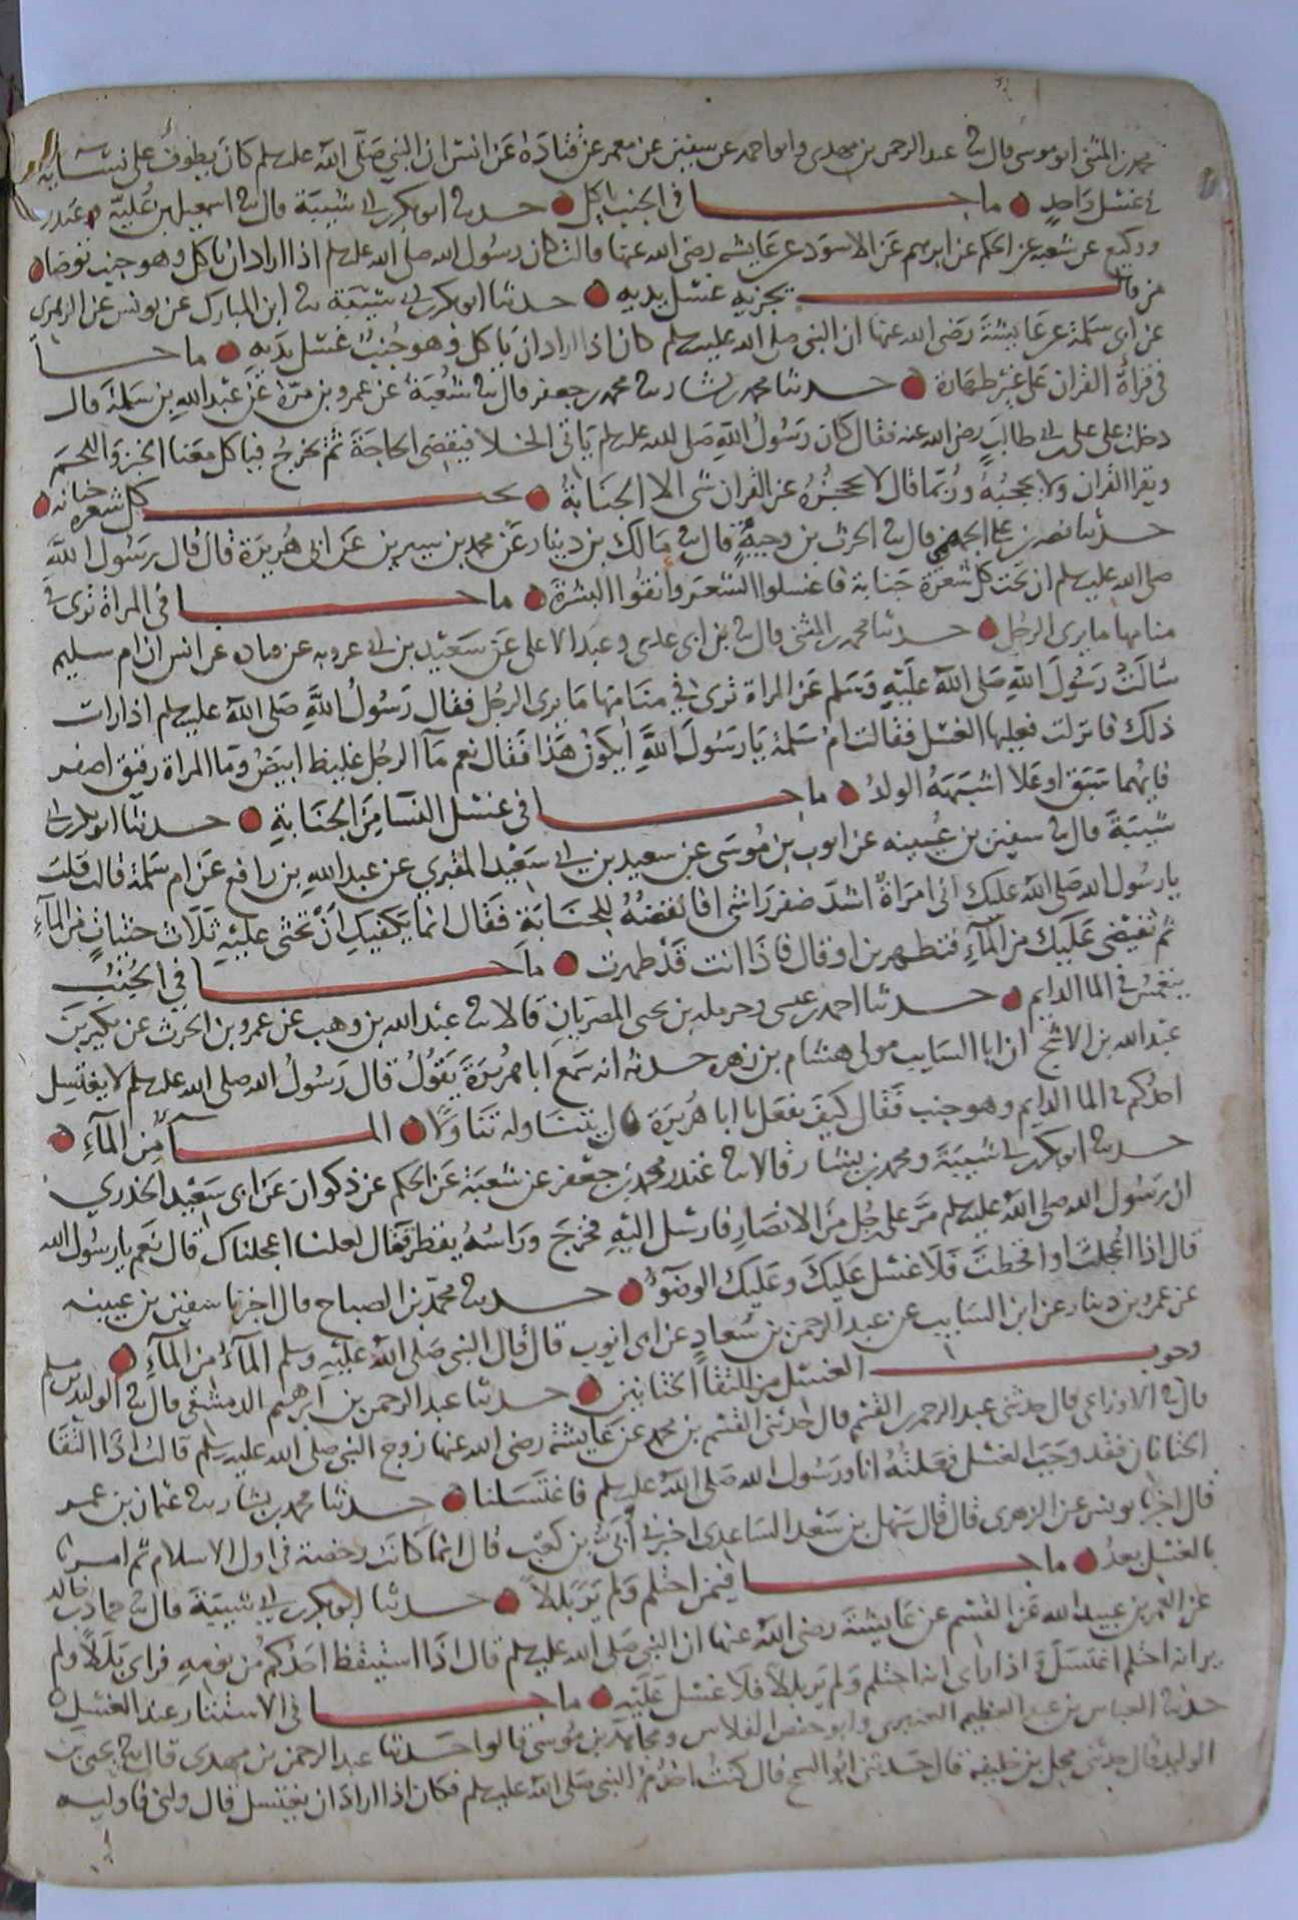 محمد بن المثنى ابو موسى قال ثنا عبد الرحمن بن مهدى وابو احمد عن سفين عن معمر عن قتادة عن انس ان النبي صلى الله عليه وسلم كان يطوف على نسائه
في غسل واحد ● ما جا في الجنب ياكل ● حدثنا ابو بكر بن ابي شيبة قال ثنا اسمعيل بن علية وغندر
ووكيع عن شعبة عن الحكم عن ابرهيم عن الاسود عن عايشة رضى الله عنها قالت كان رسول الله صلى الله عليه وسلم اذا اراد ان ياكل وهو جنب توضا ●
من قال يجزيه غسل يديه ● حدثنا ابو بكر بن ابي شيبة ثنا ابن المبارك عن يونس عن الزهرى
عن ابى سلمة عن عايشة رضى الله عنها ان النبى صلى الله عليه وسلم كان اذا اراد ان ياكل وهو جنب غسل يديه ● ما جا
فى قراة القران على غير طهارة ● حدثنا محمد بن بشار ثنا محمد بن جعفر قال ثنا شعبة عن عمرو بن مرة عن عبد الله بن سلمة قال
دخلت على على بن ابي طالب رضى الله عنه فقال كان رسول الله صلى الله عليه وسلم ياتى الخلا فيقضى الحاجة ثم يخرج فياكل معنا الخبز واللحم
ويقرا القران ولا يحجبه وربما قال لا يحجزه عن القران شى الا الجنابة ● تحت كل شعره جنابه ●
حدثنا نصر بن على الجهضمى قال ثنا الحرث بن وجيه قال ثنا مالك بن دينار عن محمد بن سيرين عن ابى هريرة قال قال رسول الله
صلى الله عليه وسلم ان تحت كل شعرة جنابة فاغسلوا الشعر وانقوا البشرة ● ما جا فى المراة ترى في
منامها ما يرى الرجل ● حدثنا محمد بن المثنى قال ثنا بن ابى عدى وعبد الاعلى عن سعيد بن ابي عروبه عن قتادة عن انس ان ام سليم
سالت رسول الله صلى الله عليه وسلم عن المراة ترى في منامها ما يرى الرجل فقال رسول الله صلى الله عليه وسلم اذا رات
ذلك فانزلت فعليها الغسل فقالت ام سلمة يا رسول الله ايكون هذا فقال نعم مآ الرجل غليظ ابيض وما المراة رقيق اصفر
فايهما سبق او علا اشبهه الولد ● ما جا في غسل النسآ من الجنابة ● حدثنا ابو بكر بن ابي
شيبة قال ثنا سفين بن عيينه عن ايوب بن موسى عن سعيد بن ابي سعيد المقبري عن عبد الله بن رافع عن ام سلمة قالت قلت
يا رسول الله صلى الله عليك انى امراة اشد ضفر راسى افانقضه للجنابة فقال انما يكفيك ان تحثى عليه ثلاث حثيات من المآء
ثم تفيضى عليك من المآء فتطهرين او قال فاذا انت قد طهرت ● ما جا في الجنب
ينغمس في الما الدايم ● حدثنا احمد بن عيسى وحرمله بن يحيى المصريان قالا ثنا عبد الله بن وهب عن عمرو بن الحرث عن بكير بن
عبد الله بن الاشج ان ابا السايب مولى هشام بن زهره حدثه انه سمع ابا هريرة يقول قال رسول الله صلى الله عليه وسلم لا يغتسل
احدكم في الما الدايم وهو جنب فقال كيف يفعل يا ابا هريرة قال يتناوله تناولا ● المآ من المآء ●
حدثنا ابو بكر بن ابي شيبة ومحمد بن بشار قالا ثنا غندر محمد بن جعفر عن شعبة عن الحكم عن ذكوان عن ابى سعيد الخدري
ان رسول الله صلى الله عليه وسلم مر على رجل من الانصار فارسل اليه فخرج وراسه يقطر فقال لعلنا اعجلناك قال نعم يا رسول الله
قال اذا اعجلت او اقحطت فلا غسل عليك وعليك الوضوء ● حدثنا محمد بن الصباح قال اخبرنا سفين بن عيينه
عن عمرو بن دينار عن ابن السايب عن عبد الرحمن بن سعاد عن ابى ايوب قال قال النبى صلى الله عليه وسلم المآء من المآء ●
وجوب الغسل من التقآ الختانين ● حدثنا عبد الرحمن بن ابرهيم الدمشقى قال ثنا الوليد بن مسلم
قال ثنا الاوزاعى قال حدثنى عبد الرحمن بن القسم قال اخبرنى القسم بن محمد عن عايشة رضى الله عنها زوج النبى صلى الله عليه وسلم قالت اذا التقا
الختانان فقد وجب الغسل فعلته انا ورسول الله صلى الله عليه وسلم فاغتسلنا ● حدثنا محمد بن بشار ثنا عثمان بن عمر
قال اخبرنا يونس عن الزهرى قال قال سهل بن سعد الساعدى اخبرني ابي بن كعب قال انما كانت رخصة فى اول الاسلام ثم امرنا
بالغسل بعد ● ما جا فيمن احتلم ولم ير بللا ● حدثنا ابو بكر بن ابي شيبة قال ثنا حماد بن خالد
عن العمرى عن عبيد الله عن القسم عن عايشة رضى الله عنها ان النبى صلى الله عليه وسلم قال اذا استيقظ احدكم من نومه فراى بللا ولم
ير انه احتلم اغتسل واذا راى انه احتلم ولم ير بللا فلا غسل عليه ● ما جا فى الاستتار عند الغسل
حدثنا العباس بن عبد العظيم العنبرى وابو حفص الفلاس ومجاهد بن موسى قالوا حدثنا عبد الرحمن بن مهدى قال ثنا يحيى بن
الوليد قال حدثنى محل بن خليفه قال حدثنى ابو السمح قال كنت اخدم النبى صلى الله عليه وسلم فكان اذا اراد ان يغتسل قال ولنى فاوليه